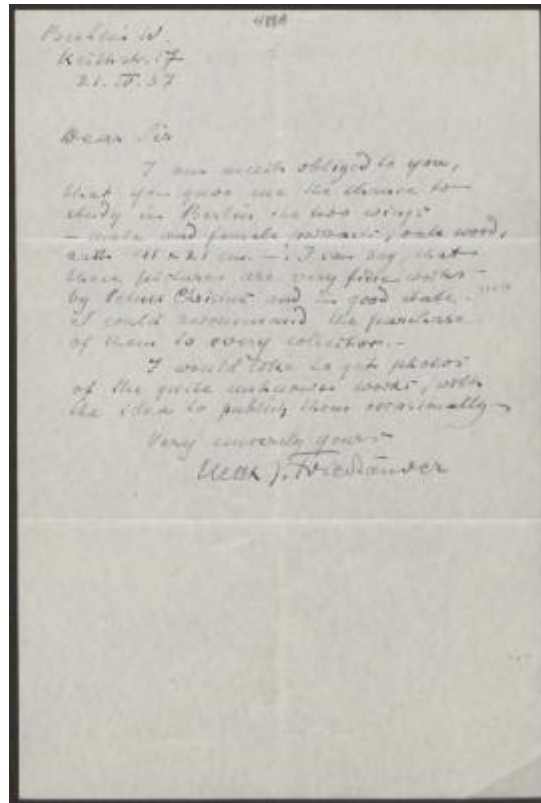 Berlin W.
Keithstr. 17
21. IV. 37
Dear Sir
I am much obliged to you,
that you gave me the chance to
study in Berlin the two wings
– male and female portraits, oak wood,
each 41 x 21 cm –. I can say that
these pictures are very fine works
by Petrus Christus and in good state.
I could recommand the purchase
of them to every collector. –
I would like to get photos
of the quite unknown works, with
the idea to publish them occasionally
Very sincerely yours
Max J. Friedländer